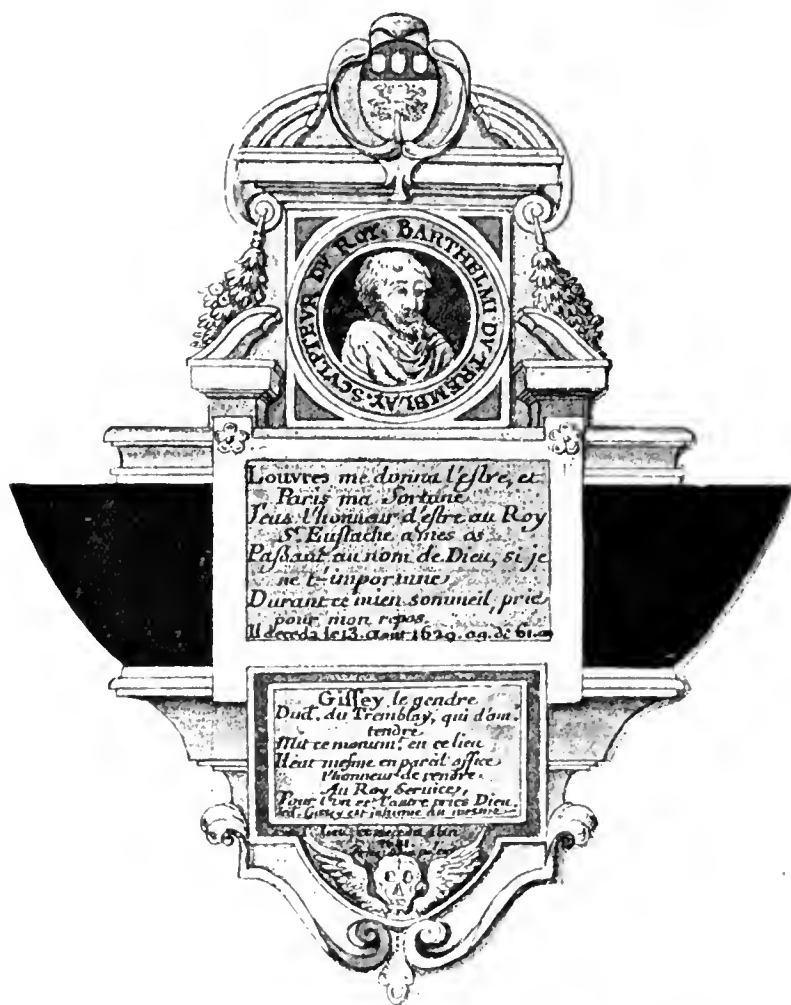 BARTHELMI · DV · TREMBLAY · SCVLPTEVR DV ROY ·
Louvres me donna l'estre, et
Paris ma fortune
J'eus l'honneur d'estre au Roy
St. Eustache a mes os
Passant au nom de Dieu, si je
ne t'importune
Durant ce mien sommeil, prie
pour mon repos.
Il deceda le 13. Aout 1629. ag. de 61. an
Gissey le gendre
Dud. du Tremblay, qui d'am.
tendre
Mit ce monumt. en ce lieu
Il eut mesme en pareil office
l'honneur de rendre
Au Roy Service,
Pour l'un et l'autre priés Dieu.
Gissey est inhumé au mesme
lieu